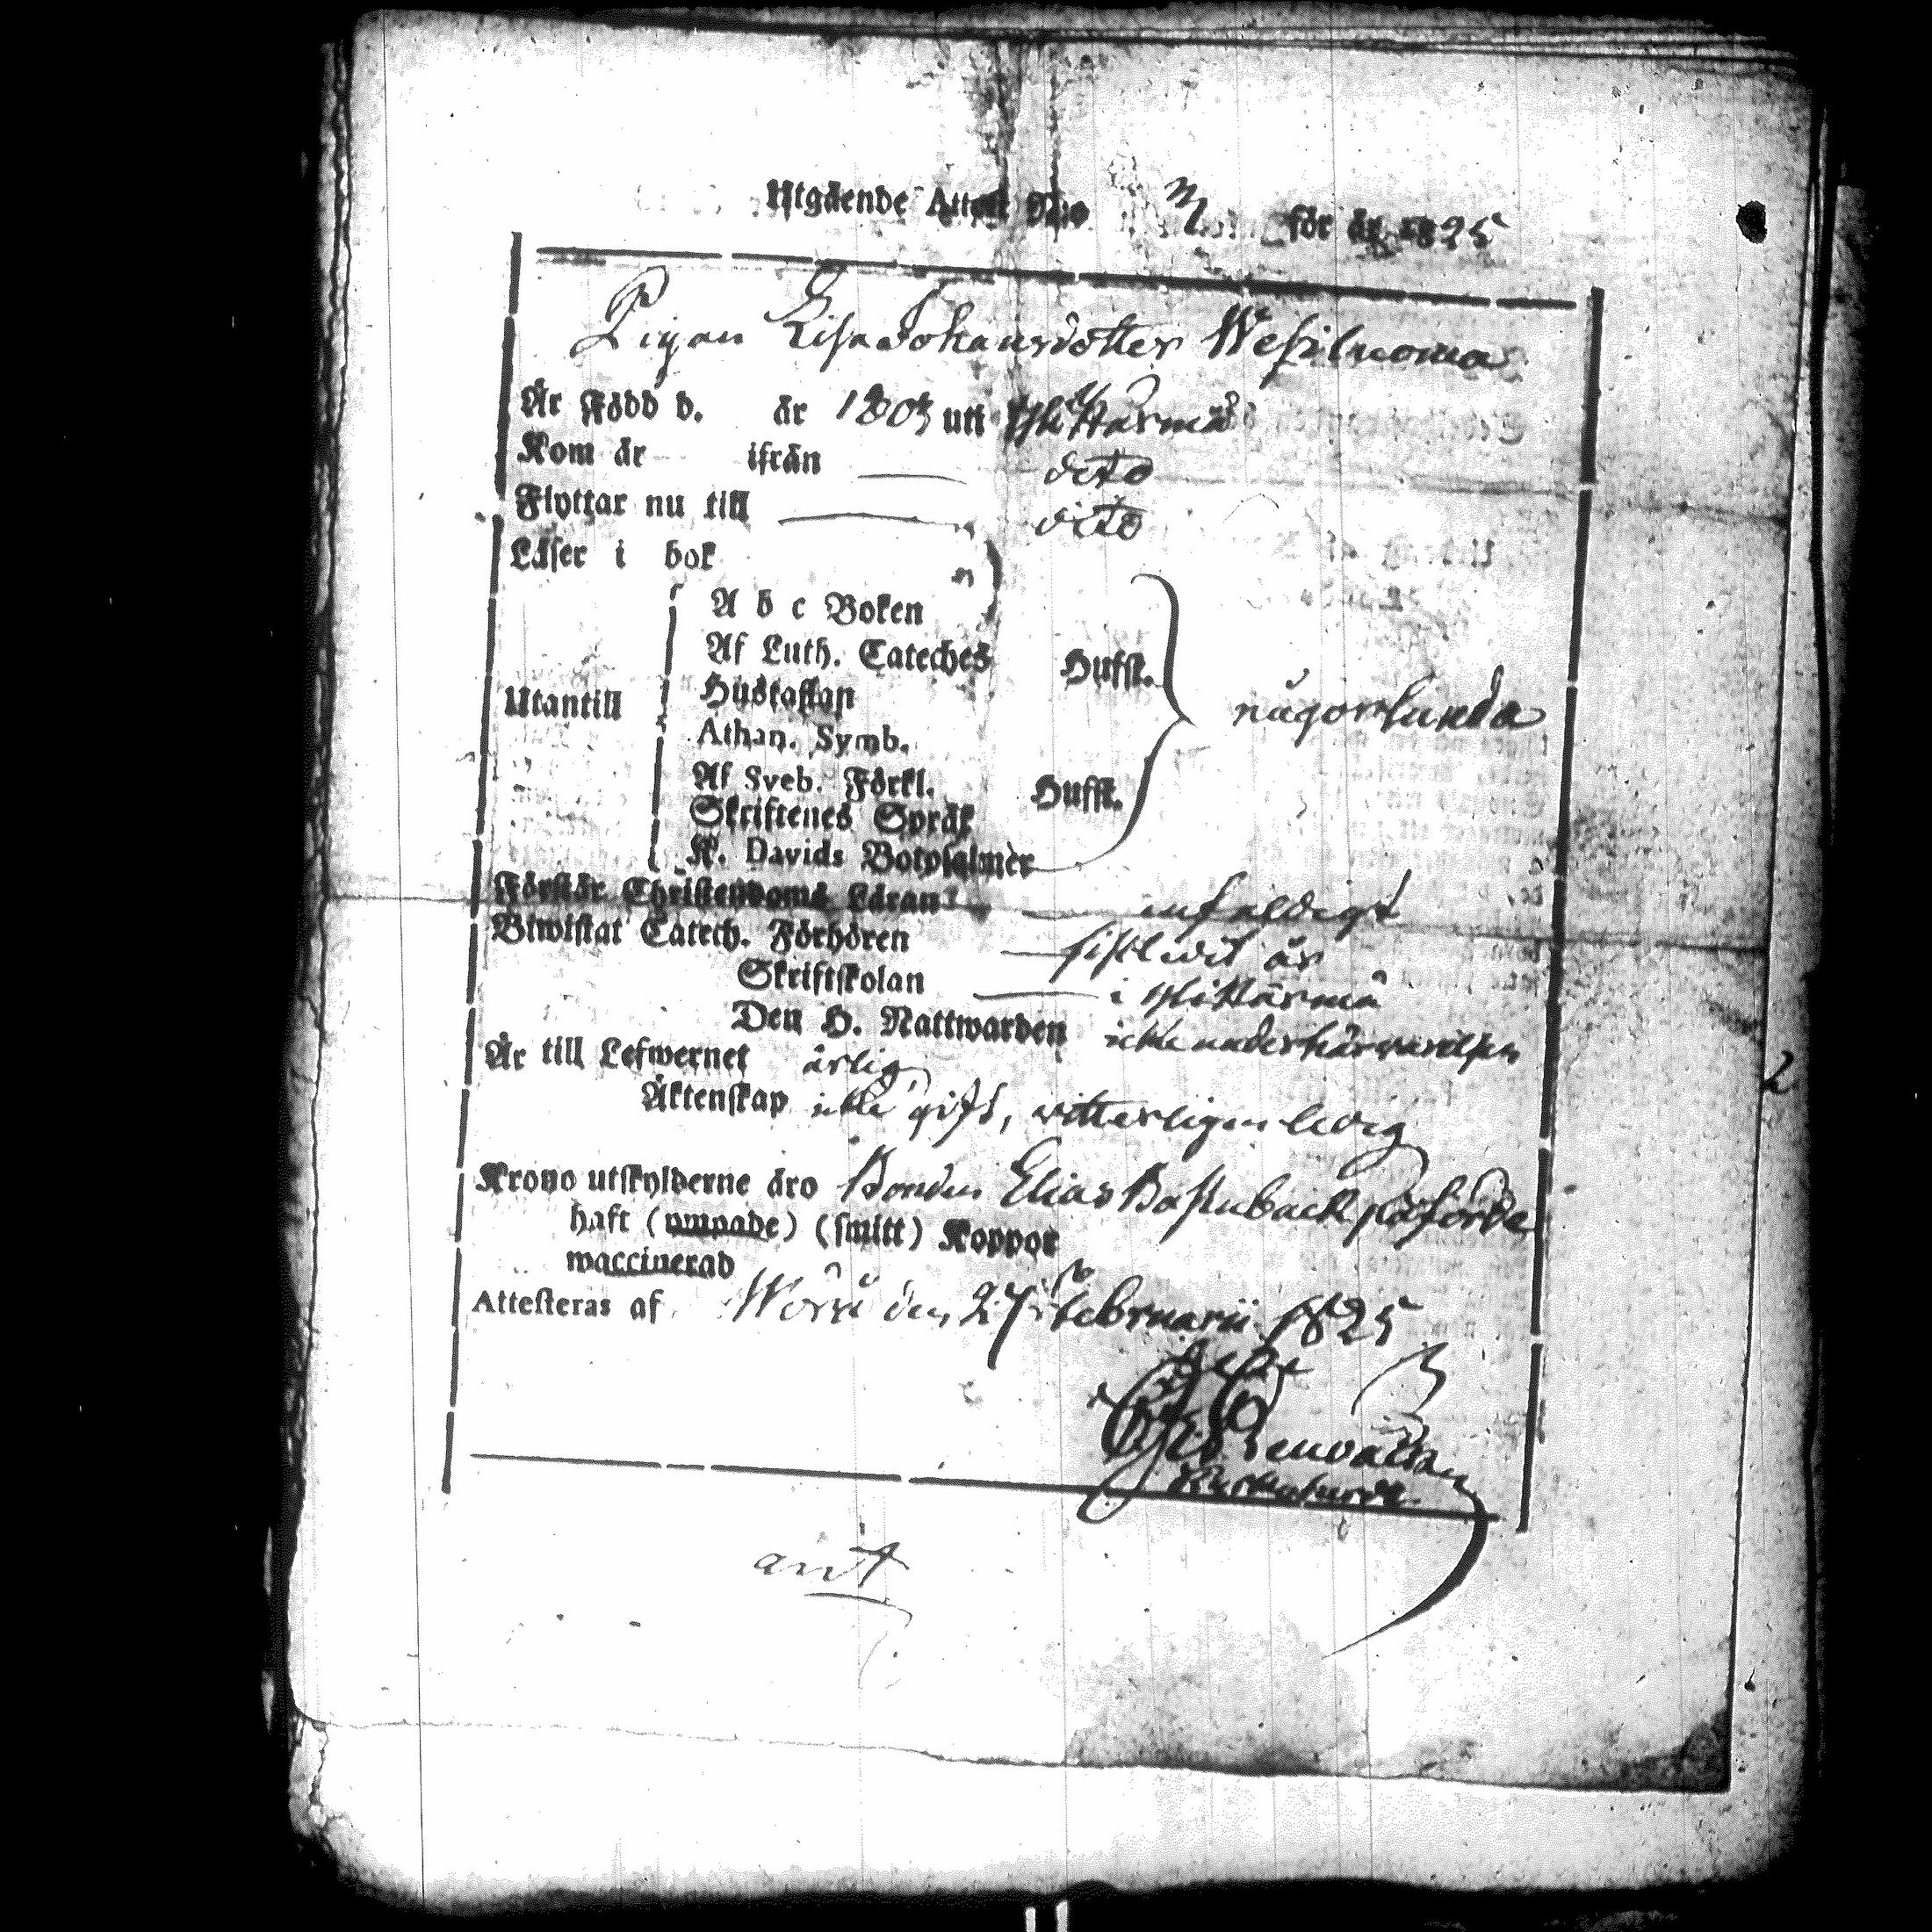 Utgående Attest N:o för år 1825
Pigan Lisa Johansdotter Wesiluoma
Är Född d. år 1803 uti Ylihärmä
Kom år ifrån dito
Flyttar nu till dito
Läser i bok
A b c Boken
Af Luth. Cateches Hufst.
Utantill Hustaflan någorlunda
Athan. Symb.
Af Sveb. Förkl. Hufst.
Skriftenes Språk
K. Davids Botpsalmer
Förstår Christendoms Läran enfaldigt
Biwistat Catech. Förhören sistledit år
Skriftskolan i Ylihärmä
Den H. Nattwarden icke under härvarelsen
Är till Lefwernet ärlig
Äktenskap icke gift, vitterligen ledig
Krono utskylderne äro Bonden Elias Bastubacka påförde
haft (ympade) (smitt) Koppor
waccinerad
Attesteras af Wörå den 27 Februarii 1825
ant